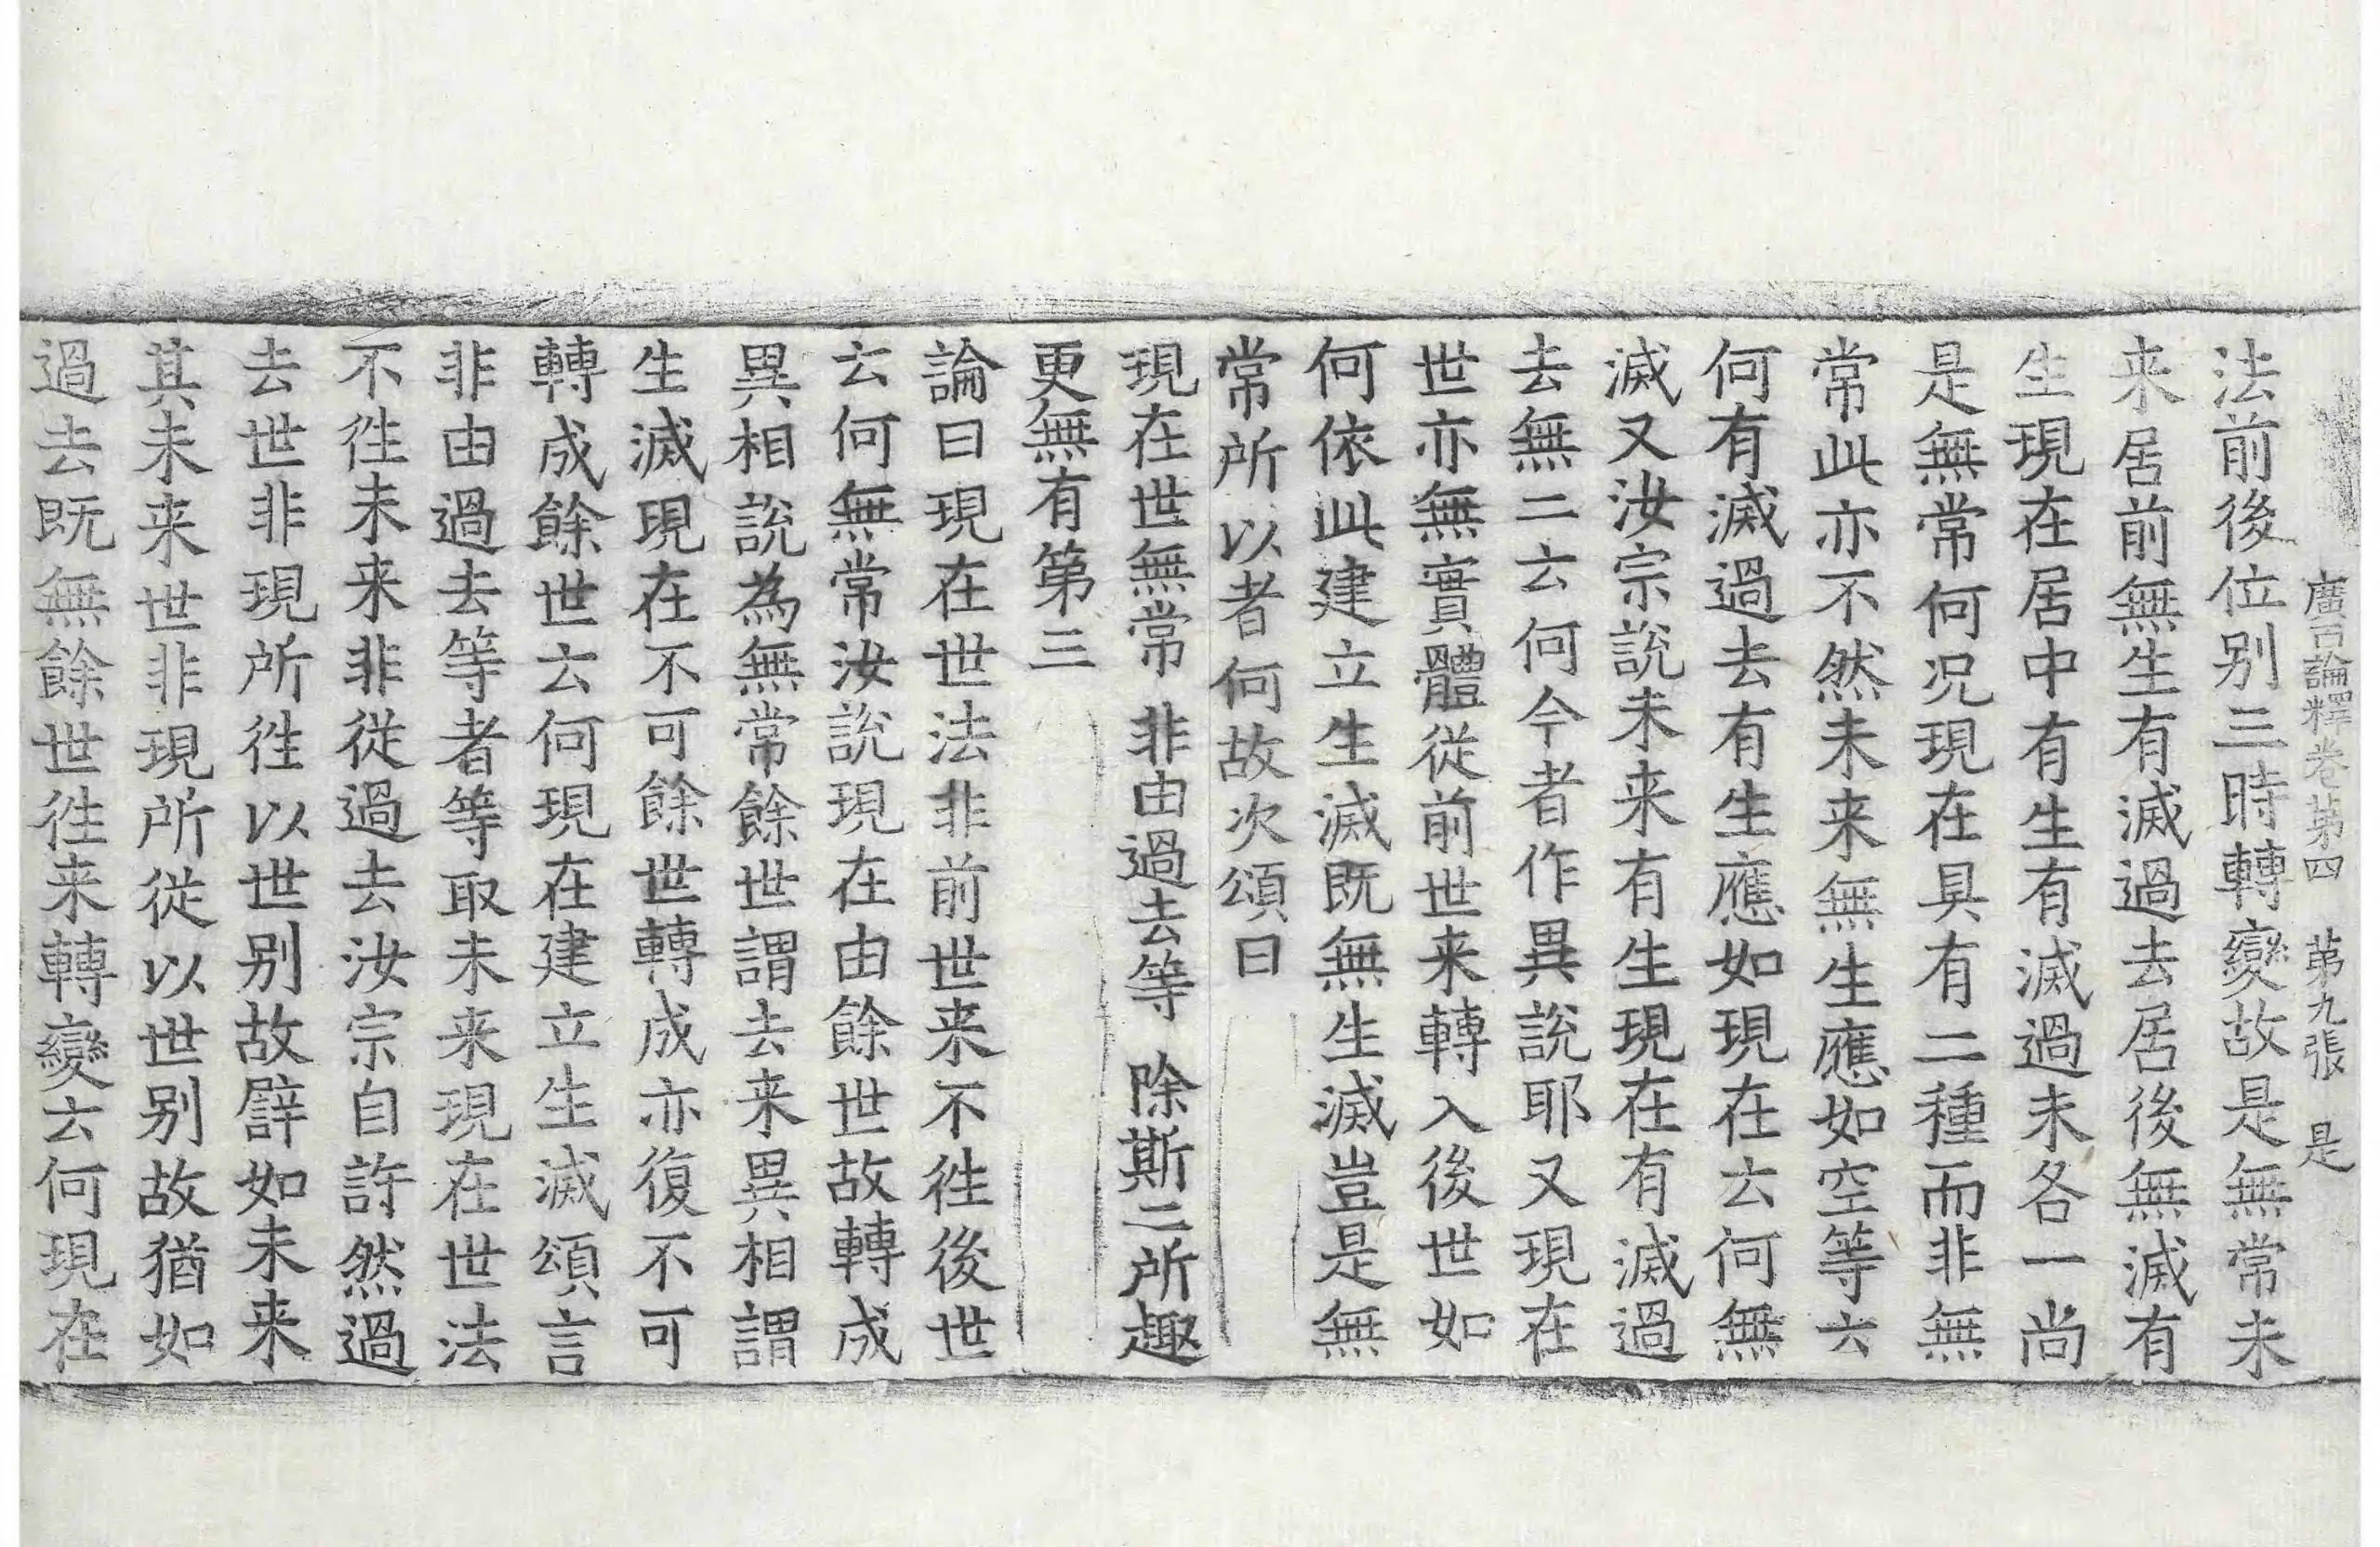 廣百論釋卷第四　第九張　是
法前後位别三時轉變故是無常未
来居前無生有滅過去居後無滅有
生現在居中有生有滅過未各一尚
是無常何况現在具有二種而非無
常此亦不然未来無生應如空等云
何有滅過去有生應如現在云何無
滅又汝宗說未来有生現在有滅過
去無二云何今者作異說耶又現在
世亦無實體從前世来轉入後世如
何依此建立生滅既無生滅豈是無
常所以者何故次頌曰
現在世無常　非由過去等　除斯二所趣
更無有第三
論曰現在世法非前世来不徃後世
云何無常汝說現在由餘世故轉成
異相說為無常餘世謂去来異相謂
生滅現在不可餘世轉成亦復不可
轉成餘世云何現在建立生滅頌言
非由過去等者等取未来現在世法
不徃未来非從過去汝宗自許然過
去世非現所徃以世别故譬如未来
其未来世非現所從以世别故猶如
過去既無餘世徃来轉變云何現在